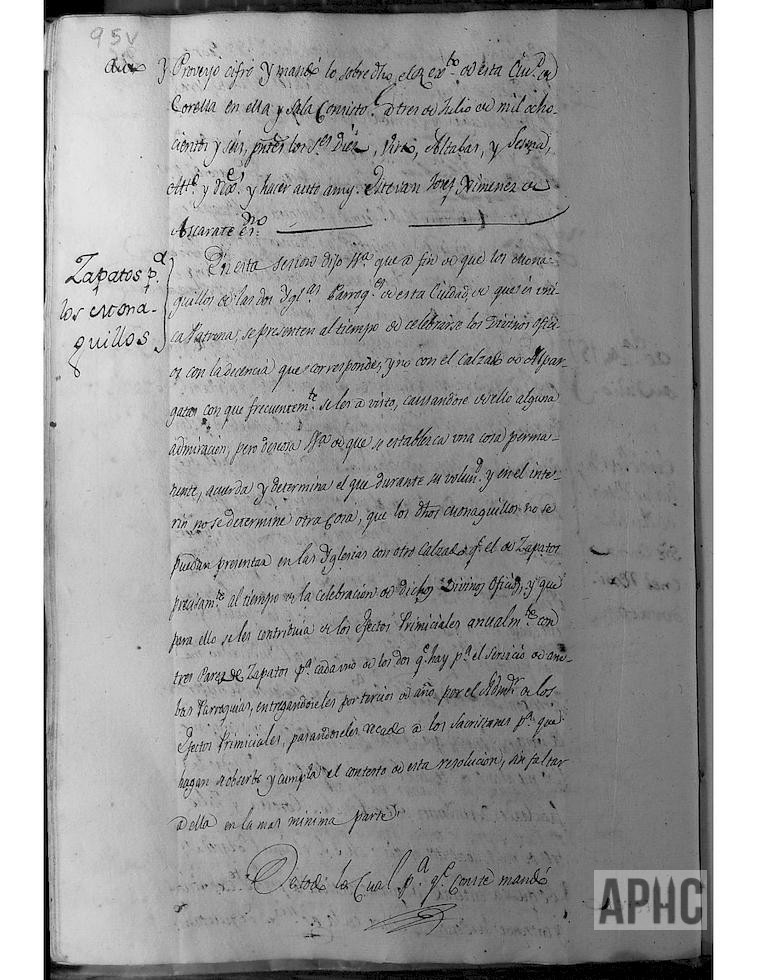 95v
Auto y Proveyo cifró y mandó lo sobre dho el Regto. de esta Ciud. de
Corella en ella y Sala Consisto.l a tres de Julio de mil ocho-
cientos y seis, pntes. los Ses. Diez, Virto, Altabas, y Sesma,
y hacer auto a my. Estevan Josef Ximenez de
Ascarate Esno.
Zapatos pa.
los Mona-
guillos
En esta sesion dijo Sa. que a fin de que los Mona-
guillos de las dos Ygl.as Parroq.es de esta Ciudad, de que es uni-
ca Patrona, se presenten al tiempo de celebrarse los Divinos Ofici-
os con la decencia que corresponde, y no con el calzado de Alpar-
gatas con que frecuentemte. se los a visto, causandose de ello alguna
admiración, pero deseosa Sa. de que se establezca una cosa perma-
nente, acuerda y determina el que durante su volund. y en el inte-
rin no se determine otra cosa, que los dhos Monaguillos no se
puedan presentar en las Yglesias con otro Calzado qe. el de Zapatos
precisamte. al tiempo de la celebración de dichos Divinos Oficios, y que
para ello se les contribuia de los Efectos Primiciales anualmte. con
tres Pares de Zapatos pa. cada uno de los dos qe. hay pa. el Servicio de am-
bas Parroquias, entregandoseles por tercios de año, por el Admor. de los
Efectos Primiciales, pasandoseles recado a los Sacristanes pa. que
hagan se observe y cumpla el contexto de esta resolucion, sin faltar
a ella en la mas minima parte.
De todo lo Cual pa. qe. Conste mandó
APHC